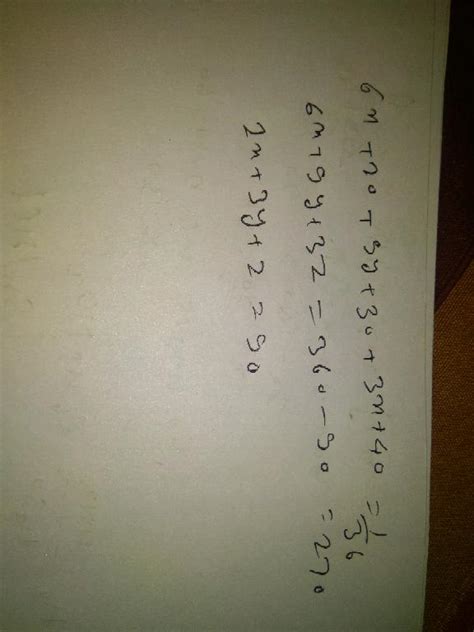 6x + 20 + 9y + 30 + 3x + 40 = 1/36
6x + 9y + 3z = 360 - 90 = 270
2x + 3y + z = 90